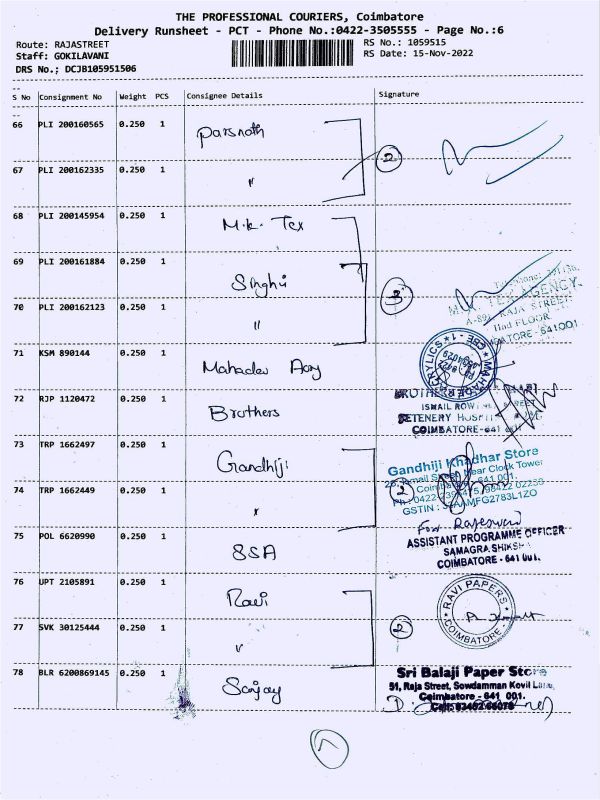 THE PROFESSIONAL COURIERS, Coimbatore
Delivery Runsheet - PCT - Phone No.:0422-3505555 - Page No.:6
Route: RAJASTREET
RS No.: 1059515
Staff: GOKILAVANI
RS Date: 15-Nov-2022
DRS No.; DCJB105951506
S No Consignment No Weight PCS Consignee Details Signature
66 PLI 200160565 0.250 1 Parsnath
2
67 PLI 200162335 0.250 1 "
68 PLI 200145954 0.250 1 M.K. Tex
69 PLI 200161884 0.250 1 Singhvi
3
70 PLI 200162123 0.250 1 "
TEX AGENCY
RAJA STREET
IInd FLOOR
641001
71 KSM 890144 0.250 1 Mahadev
72 RJP 1120472 0.250 1 Brothers
ISMAIL ROW
COIMBATORE-641
73 TRP 1662497 0.250 1 Gandhiji
Gandhiji Khadhar Store
Near Clock Tower
641 001.
74 TRP 1662449 0.250 1 "
2
75 POL 6620990 0.250 1 SSA
For Rajeswari
ASSISTANT PROGRAMME OFFICER
SAMAGRA SHIKSHA
COIMBATORE - 641 001.
76 UPT 2105891 0.250 1 Ravi
RAVI PAPERS
COIMBATORE
77 SVK 30125444 0.250 1 "
2
78 BLR 6200869145 0.250 1 Sanjay
Sri Balaji Paper Store
51, Raja Street, Sowdamman Kovil Lane,
Coimbatore - 641 001.